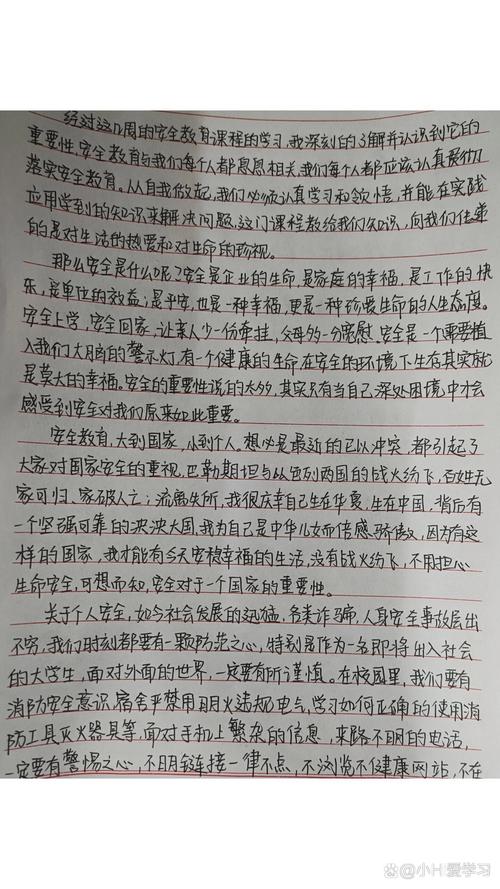 经过这几周的安全教育课程的学习,我深刻的了解并认识到它的
重要性,安全教育与我们每个人都息息相关,我们每个人都应该认真贯彻
落实安全教育。从自我做起,我们必须认真学习和领悟,并能在实践
应用学到的知识来解决问题,这门课程教给我们知识,向我们传递
的是对生活的热爱和对生命的珍视。
那么安全是什么呢?安全是企业的生命,是家庭的幸福,是工作的快
乐,是单位的效益;是平安,也是一种幸福,更是一种珍爱生命的人生态度。
安全上学,安全回家,让亲人少一份牵挂,父母多一分宽慰。安全是一个需要植
入我们大脑的警示灯,有一个健康的生命在安全的环境下生存其实就
是莫大的幸福。安全的重要性说的太多,其实只有当自己深处困境中才会
感受到安全对我们原来如此重要。
安全教育,大到国家,小到个人。想必是最近的巴以冲突,都引起了
大家对国家安全的重视,巴勒斯坦与以色列两国的战火纷飞,百姓无
家可归、家破人亡;流离失所,我很庆幸自己生在华夏,生在中国,背后有
一个坚强可靠的泱泱大国。我为自己是中华儿女而倍感骄傲,因为有这
样的国家,我才能有今天安稳幸福的生活,没有战火纷飞,不用担心
生命安全,可想而知,安全对于一个国家的重要性。
关于个人安全,如今社会发展的迅猛,各类诈骗,人身安全事故层出
不穷,我们时刻都要有一颗防范之心,特别是作为一名即将出入社会
的大学生,面对外面的世界,一定要有所谨慎。在校园里,我们要有
消防安全意识,宿舍严禁用明火违规电气,学习如何正确的使用消
防工具灭火器具等,面对手机上繁杂的信息,来路不明的电话,
一定要有警惕之心,不明链接一律不点,不浏览不健康网站,不在
小H!爱学习